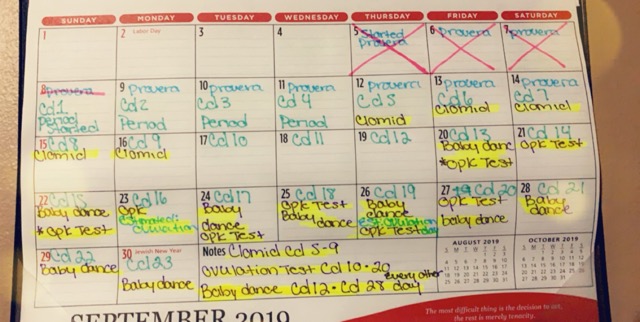 SUNDAY MONDAY TUESDAY WEDNESDAY THURSDAY FRIDAY SATURDAY
1
2 Labor Day
3
4
5 Started
provera
6 provera
7 provera
8 provera
Cd1
Period
Started
9 provera
Cd2
Period
10 provera
Cd3
Period
11 provera
Cd 4
Period
12 provera
Cd5
Clomid
13 provera
Cd6
Clomid
14 provera
Cd 7
Clomid
15 Cd8
Clomid
16 Cd9
Clomid
17 Cd10
18 Cd11
19 Cd12
20 Cd13
Baby dance
*OPK Test
21 Cd 14
OPK Test
22 Cd15
Baby dance
*OPK Test
23 Cd16
OPK
Estimated:
Ovulation
24 Cd 17
Baby
dance
OPK Test
25 Cd18
OPK Test
Baby
dance
26 Cd19
Baby
dance
est. ovulation
OPK Test day
27 Cd 20
OPK Test
baby dance
28 Cd 21
Baby
dance
29 Cd 22
Baby dance
30 Jewish New Year
Cd23
Baby dance
Notes Clomid Cd 5-9
Ovulation Test Cd 10-20
every other
Baby dance Cd12 - Cd 28 day
AUGUST 2019
OCTOBER 2019
SEPTEMBER 2019
The most difficult thing is the decision to act,
the rest is merely tenacity.